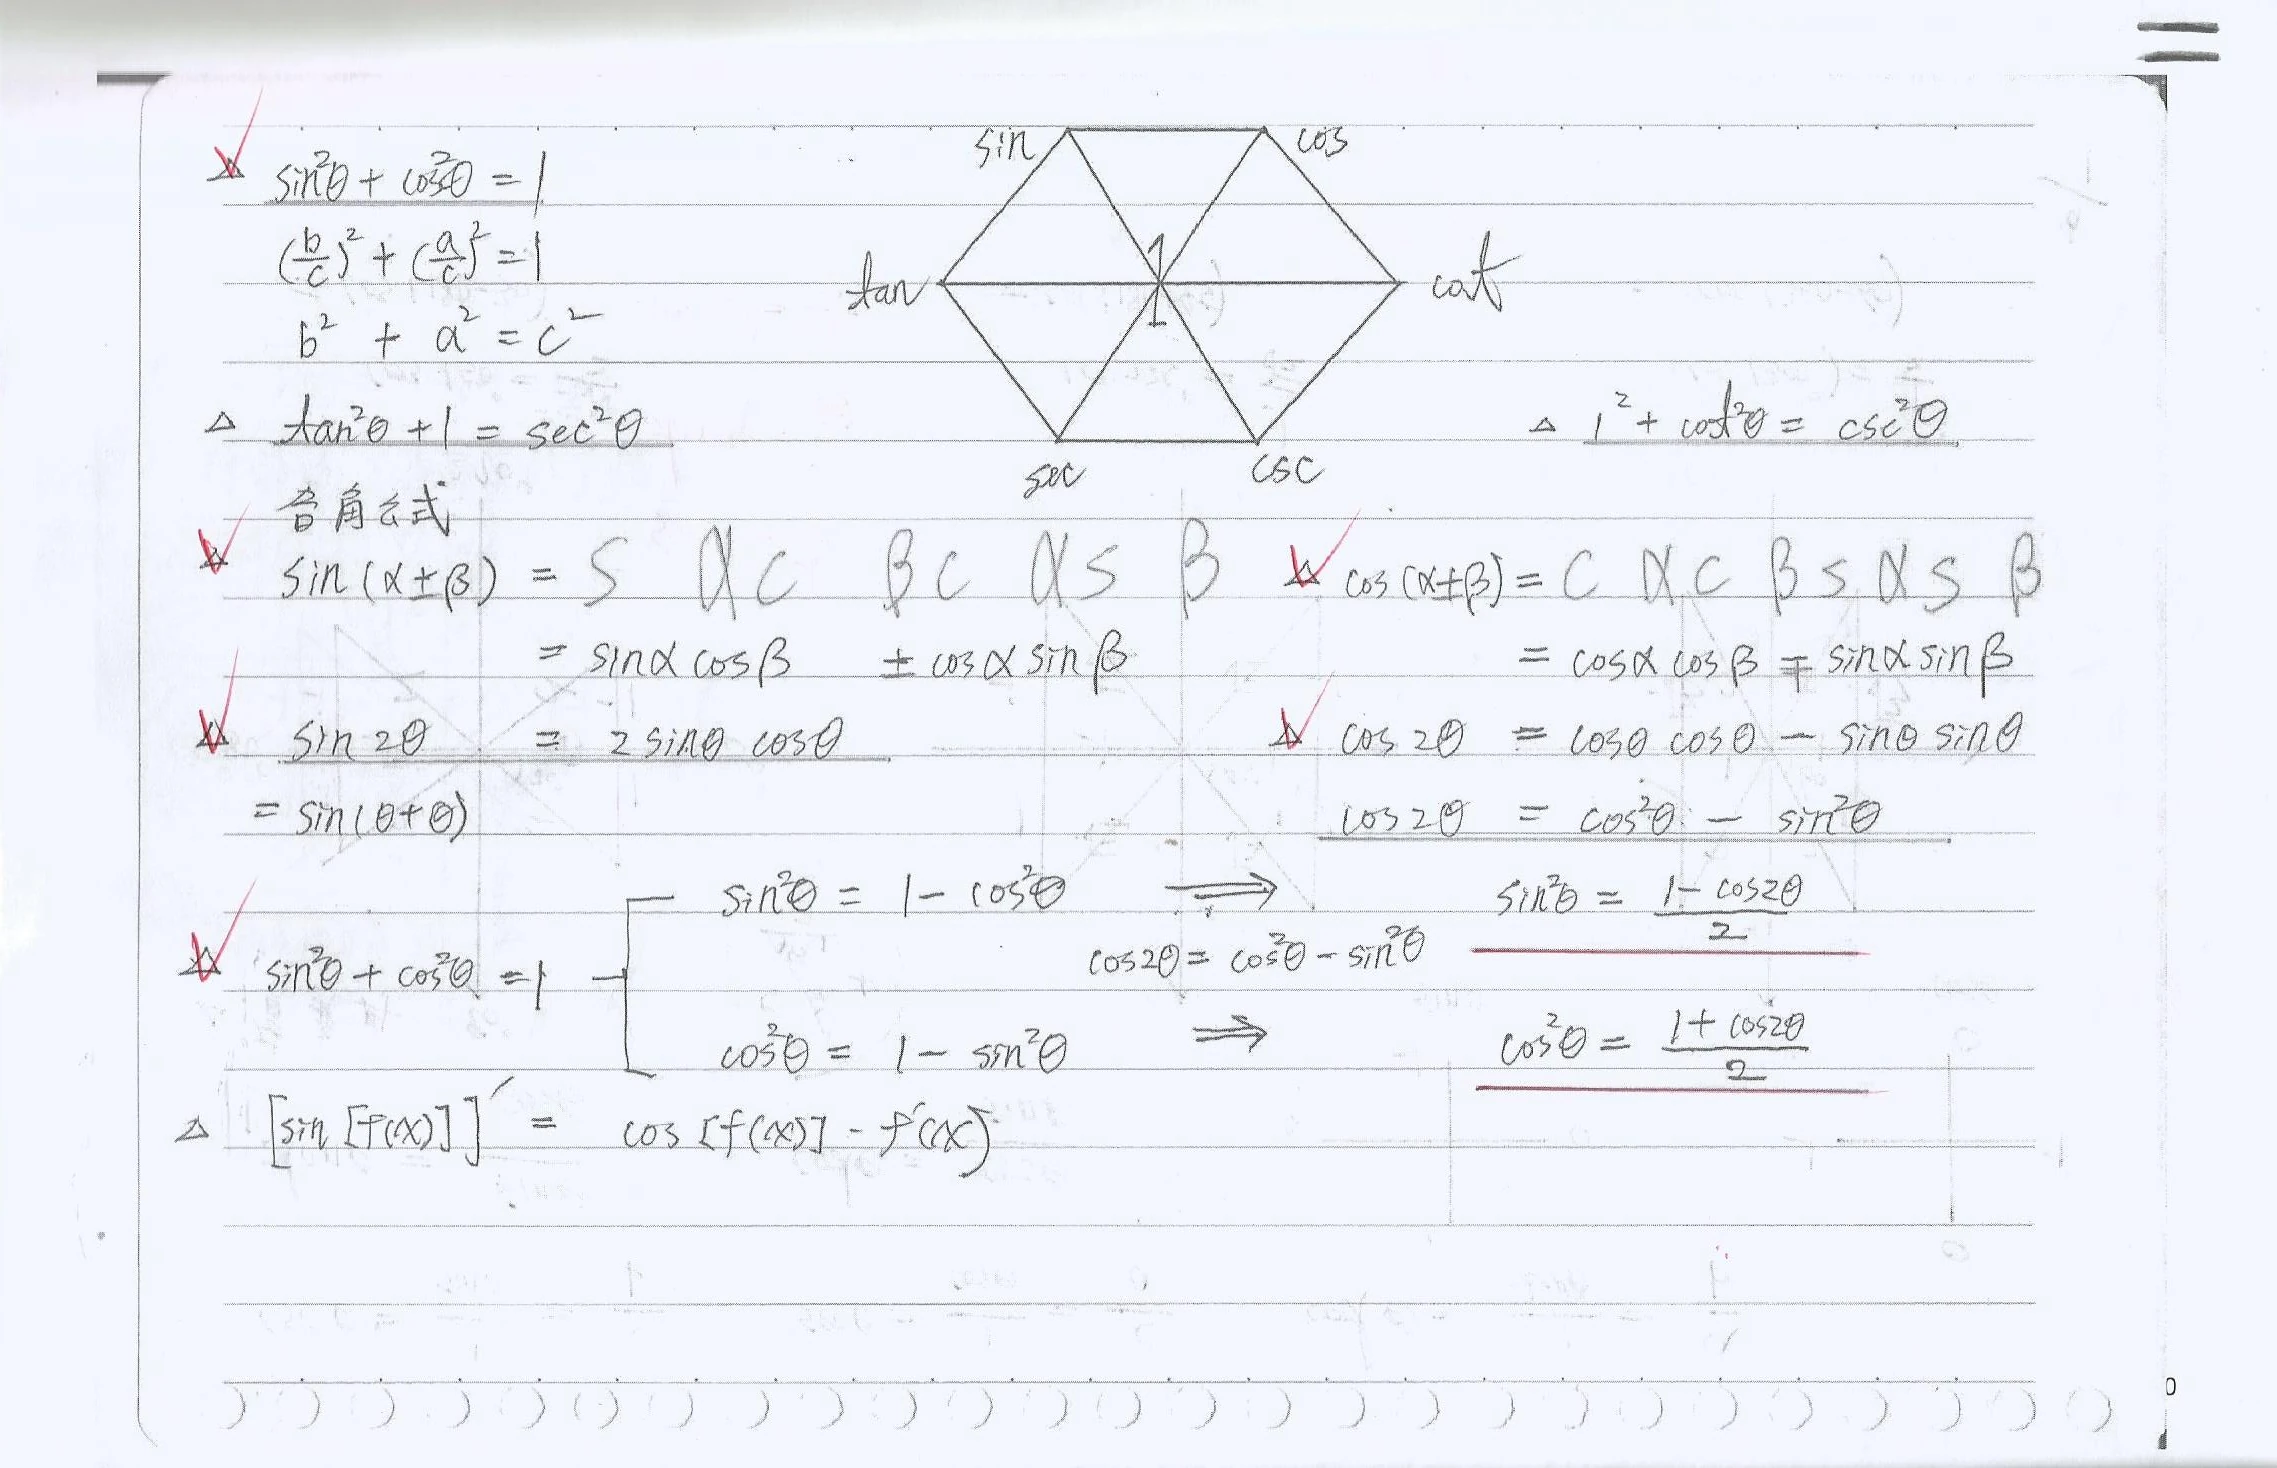 sin²θ + cos²θ = 1
(b/c)² + (a/c)² = 1
b² + a² = c²
sin cos
tan 1 cot
sec csc
△ tan²θ + 1 = sec²θ
△ 1² + cot²θ = csc²θ
合角公式
sin (α±β) = S α c β c α s β
= sinα cosβ ± cosα sinβ
cos (α±β) = C α c β s α s β
= cosα cosβ ∓ sinα sinβ
sin 2θ = 2 sinθ cosθ
= sin(θ+θ)
cos 2θ = cosθ cosθ - sinθ sinθ
cos 2θ = cos²θ - sin²θ
sin²θ + cos²θ = 1
sin²θ = 1 - cos²θ ⟹ sin²θ = (1 - cos2θ)/2
cos2θ = cos²θ - sin²θ
cos²θ = 1 - sin²θ ⟹ cos²θ = (1 + cos2θ)/2
△ [sin [f(x)]]′ = cos [f(x)] - f′(x)